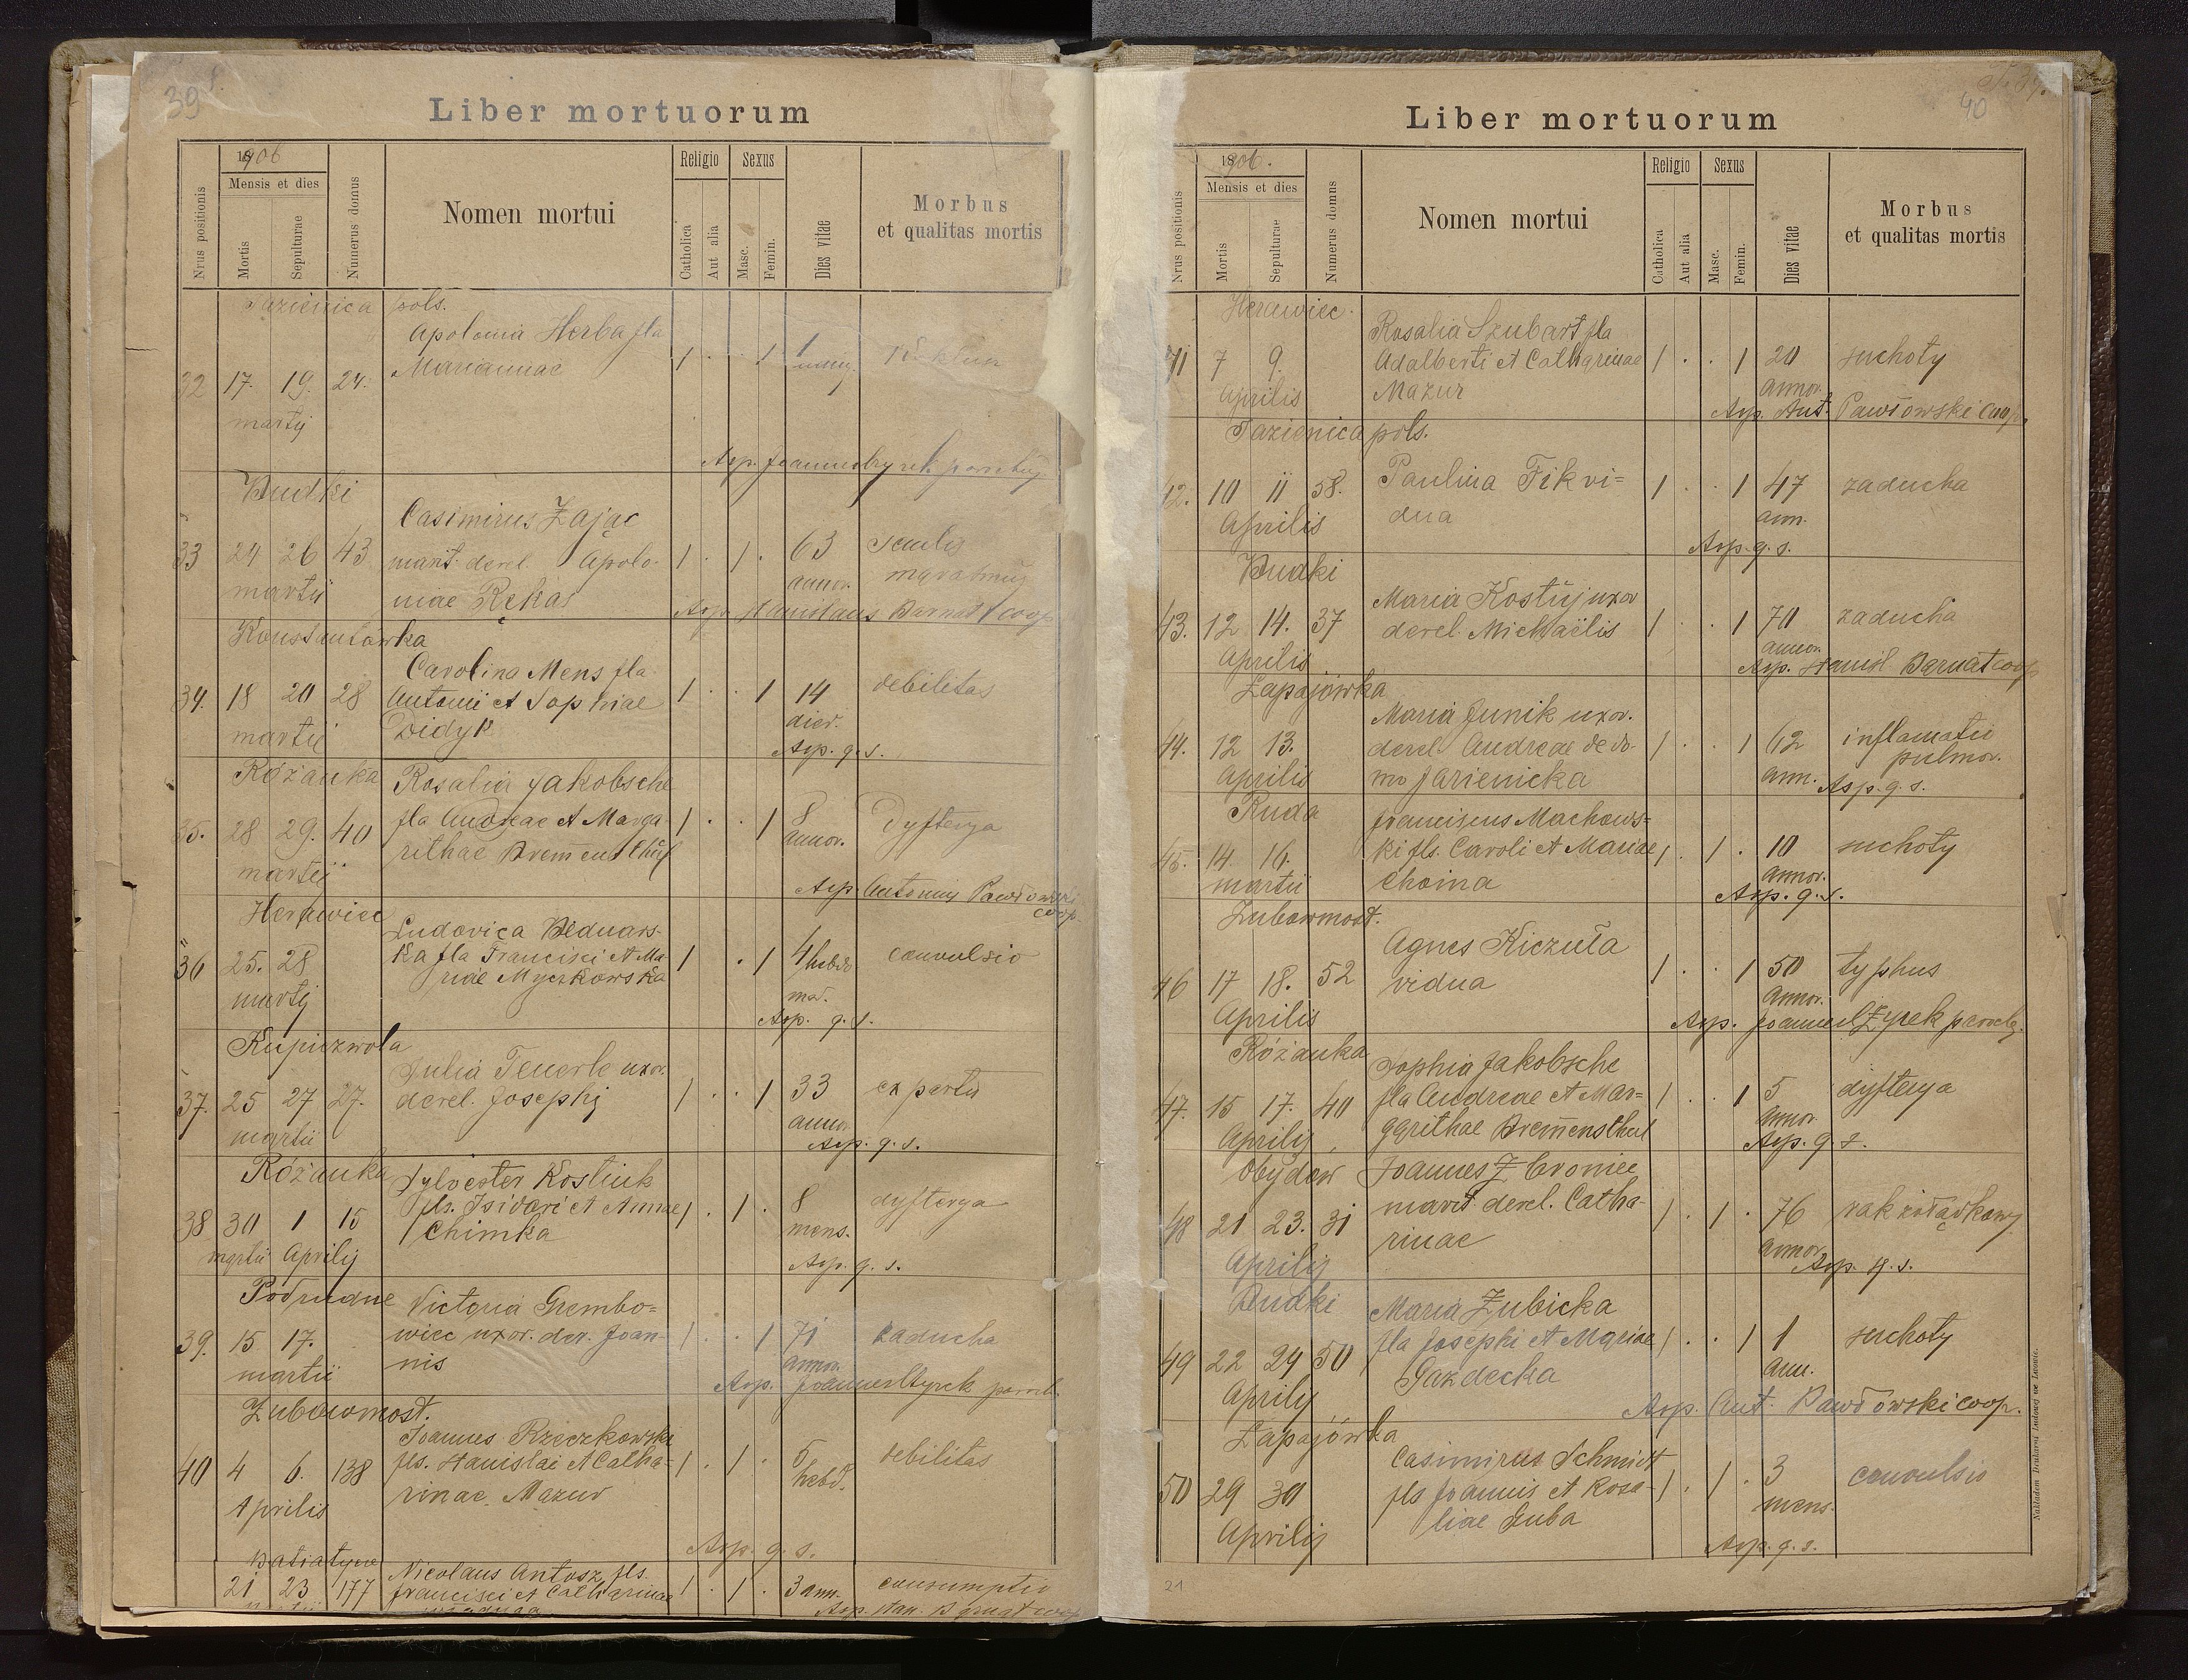 39
Liber mortuorum
1906
Mensis et dies
Nrus positionis
Mortis
Sepulturae
Numerus domus
Nomen mortui
Religio
Catholica
Aut alia
Sexus
Masc.
Femin.
Dies vitae
Morbus
et qualitas mortis
Jazienica pols.
Apolonia Herba fla
32 17. 19. 24. Mariannae 1 . . 1 1
martij
Asp. Joannes
Budki
Casimirus Zając
33 24 26 43 marit. derel. Apolo- 1 . 1 . 63 senilis
martii niae Rękas annor.
Asp. Stanislaus Barnat coop
Konstantówka
Carolina Mens fla
34. 18 20 28 Antonii et Sophiae 1 . . 1 14 debilitas
martii Didyk dier.
Asp. q. s.
Różanka Rosalia Jakobsche
35. 28 29. 40 fla Andreae et Marga- 1 . . 1 8 Dyfterya
martij rithae annor.
Asp. Antonius Pawłowski
coop.
Herawiec Ludovica Bednars-
36 25. 28 ka fla Francisci et Ma- 1 . 1 4 hebdo convulsio
martij riae Myczkowska mad.
Asp. q. s.
Kupiczwola
Julia Feuerle uxor.
37. 25 27 27. derel. Josephi 1 . . 1 33 ex partu
martii annor.
Asp. q. s.
Różanka Sylvester Kostiuk
38 30 1 15 fls. Isidori et Annae 1 . 1 . 8 dyfterya
martii Aprilij Chimka mens.
Asp. q. s.
Podrudne Victoria Grembo=
39. 15 17. wiec uxor. der. Joan- 1 . . 1 71 zaducha
martii nis annor.
Asp. Joannes Żyrek paroch.
Żubowmost.
Joannes Rzeczkowski
40 4 6. 138 fls. Stanislai et Catha- 1 . 1 . 5 debilitas
Aprilis rinae Mazur hebd.
Asp. q. s.
Batiatyne Nicolaus Antosz fls.
21 23 177 Francisci et Catharinae 1 . 1 . 3 ann. consumptio
Asp. Stan. Barnat coop
40
Liber mortuorum
1906.
Mensis et dies
Nrus positionis
Mortis
Sepulturae
Numerus domus
Nomen mortui
Religio
Catholica
Aut alia
Sexus
Masc.
Femin.
Dies vitae
Morbus
et qualitas mortis
Herawiec. Rosalia Szubart fla
41 7 9. Adalberti et Catharinae 1 . . 1 20 suchoty
Aprilis Mazur annor.
Asp. Ant. Pawłowski coop.
Jazienica pols.
42. 10 11 58. Paulina Fik vi= 1 . . 1 47 zaducha
Aprilis dua ann.
Asp. q. s.
Budki
Maria Kostúj uxor
43. 12 14. 37 derel. Michaëlis 1 . . 1 70 zaducha
Aprilis annor.
Asp. Stanisl Barnat coop
Łapajówka
Maria Junik uxor.
44. 12 13. derel. Andreae de do- 1 . . 1 62 inflamatio
Aprilis mo Jarienicka ann. pulmon.
Asp. q. s.
Ruda Franciscus Machows=
45. 14 16. ki fls. Caroli et Mariae 1 . 1 . 10 suchoty
martii Choina annor.
Asp. q. s.
Żubowmost.
Agnes Kiczuła
46 17 18. 52 vidua 1 . . 1 50 typhus
Aprilis annor.
Asp. Joannes Żyrek paroch.
Różanka Sophia Jakobsche
47. 15 17. 40 fla Andreae et Mar= 1 . . 1 5 dyfterya
Aprilij garithae Bremensthul annor
Asp. q. s.
Obydów Joannes Zbroniec
48 21 23. 31 marit. derel. Catha- 1 . 1 . 76 rak żołądkowy
Aprilij rinae annor.
Asp. q. s.
Budki Maria Zubicka
49 22 24 50 fla Josephi et Mariae 1 . . 1 1 suchoty
Aprilij Gazdecka ann.
Asp. Ant. Pawłowski coop.
Łapajówka
Casimirus Schmidt
50 29 30 fls Joannis et Rosa- 1 . 1 . 3 convulsio
Aprilij liae Guba mens.
Asp. q. s.
21
Nakładem Drukarni Ludowej we Lwowie.